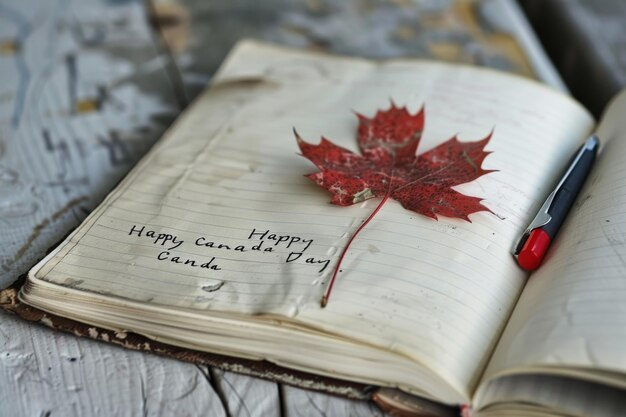 Happy
Happy Canada Day
Canda